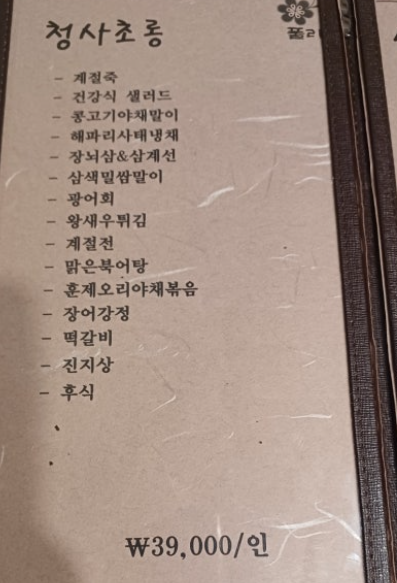 청사초롱
- 계절죽
- 건강식 샐러드
- 콩고기야채말이
- 해파리사태냉채
- 장뇌삼&삼계선
- 삼색밀쌈말이
- 광어회
- 왕새우튀김
- 계절전
- 맑은북어탕
- 훈제오리야채볶음
- 장어강정
- 떡갈비
- 진지상
- 후식
₩39,000/인